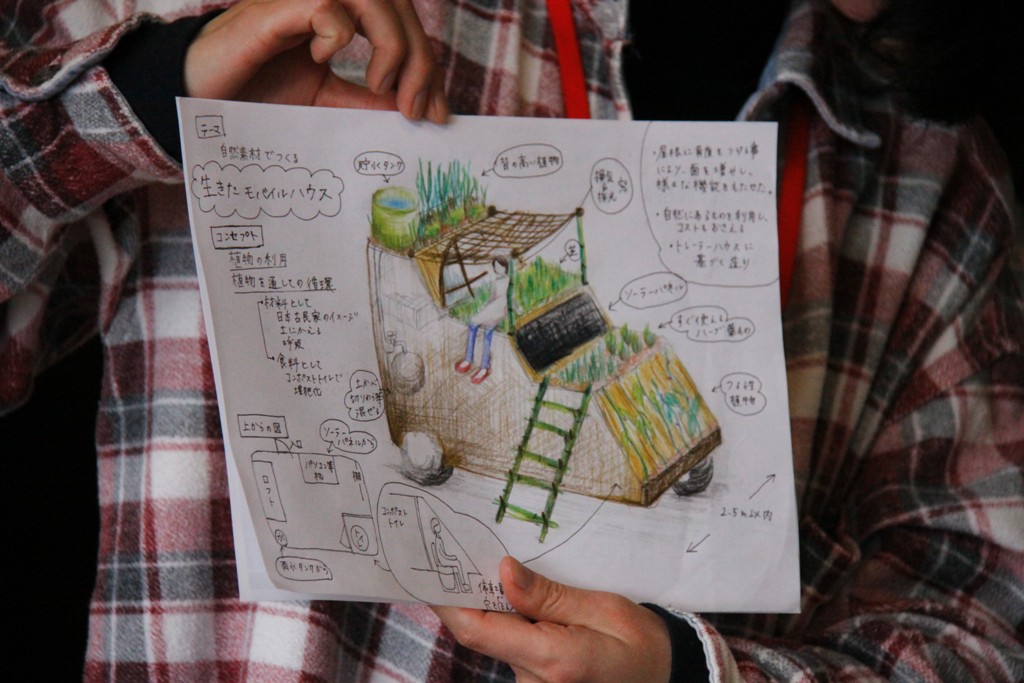 テーマ
自然素材でつくる
生きたモバイルハウス
コンセプト
植物の利用
植物を通しての循環
材料として
日本古民家のイメージ
土にかえる
呼吸
食料として
コンポストトイレで
堆肥化
貯水タンク
背の高い植物
換気
採光
窓
・屋根に角度をつける事
により、面を増やし、
様々な機能をもたせた。
・自然にあるものを利用し、
コストもおさえる
・トレーラーハウスに
基づく造り
ソーラーパネル
すぐ使える
ハーブ
つる性
植物
2.5m以内
土かべ
切りわら
混ぜる
上からの図
ソーラー
パネルから
パソコン
棚
ロフト
トイレ
コンポスト
トイレ